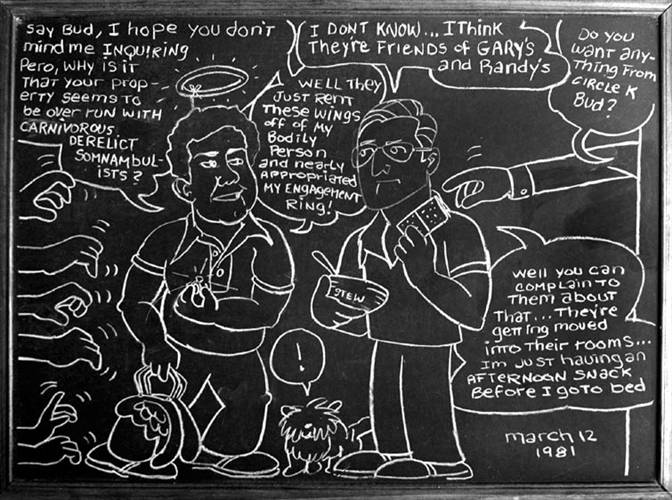 say Bud, I hope you don't
mind me INQUIRING
Pero, WHY IS IT
THAT your prop-
erty seems to
be over run with
CARNIVOROUS
DERELICT
SOMNAMBUL-
ISTS?
I DONT KNOW... I Think
They're FRIENDS of GARY'S
and Randy's
WELL They
JUST RENT
These WINGS
off of My
Bodily
Person
and nearly
APPROPRIATED
MY ENGAGEMENT
RING!
Do you
want any-
thing From
CIRCLE K
Bud?
STEW
!
well you can
complain to
Them about
that... They're
getting moved
into their rooms...
Im Just having an
AFTERNOON SNACK
Before I go to bed
march 12
1981